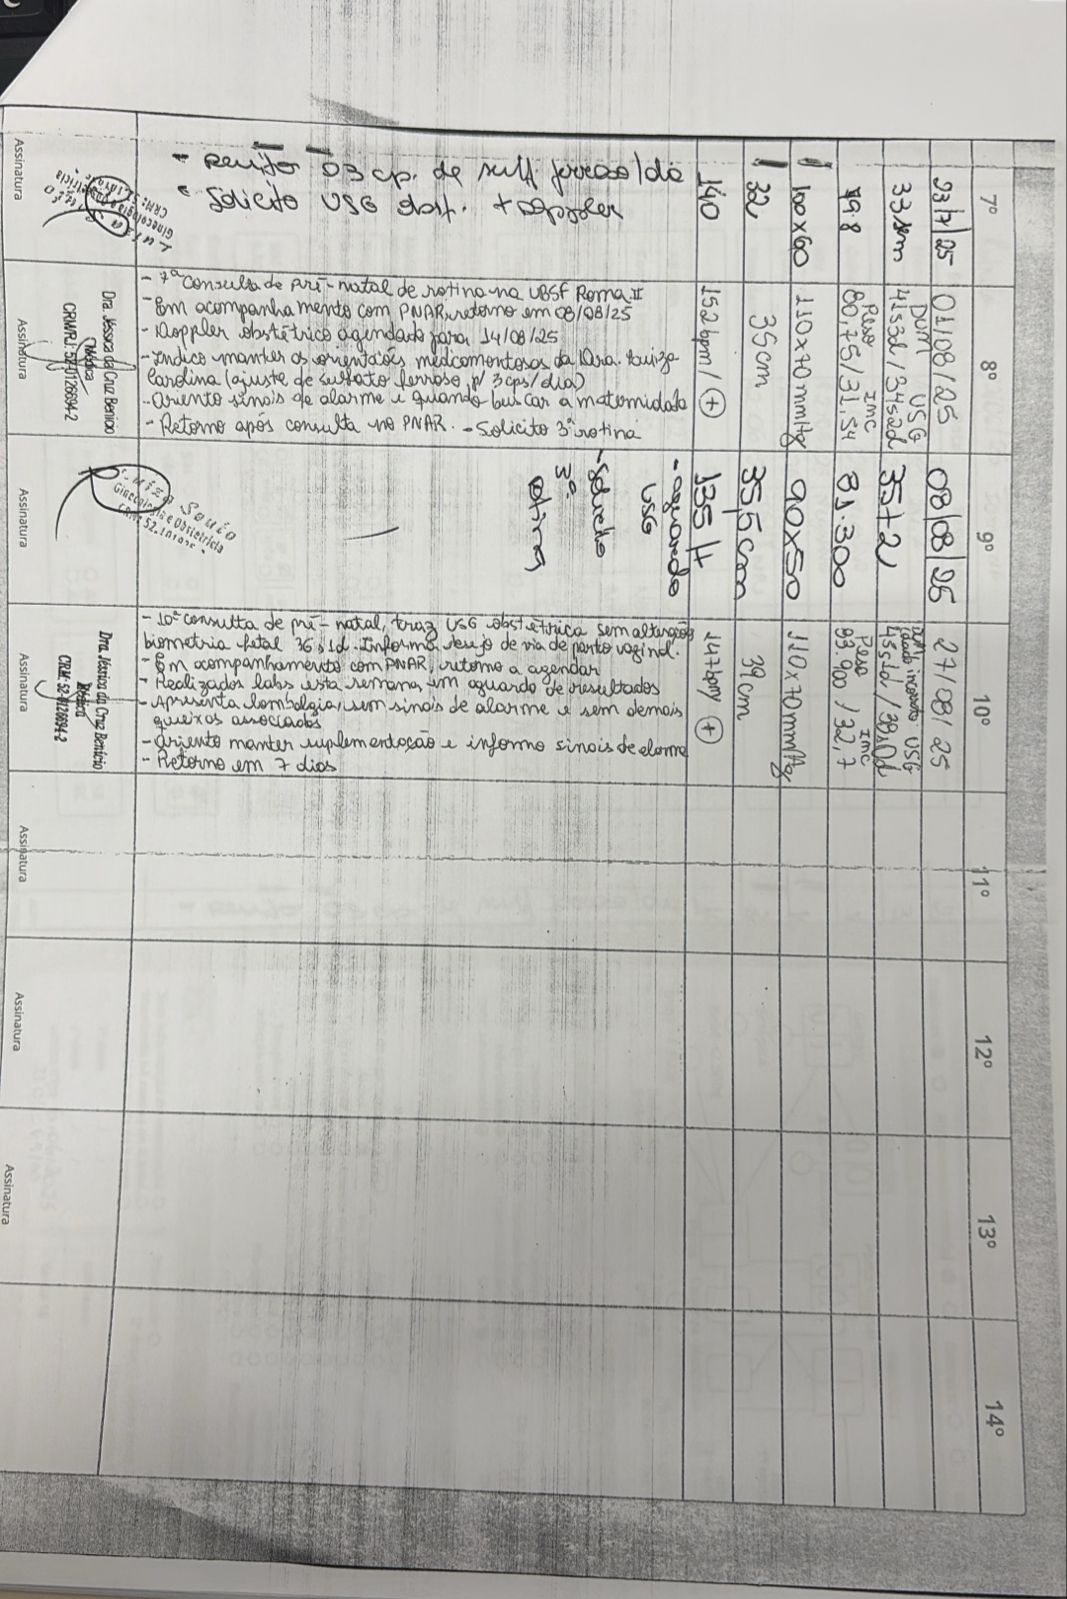 7º
23/7/25
33 sem
79.8
100x60
32
140
- 03 cp. de sulf. ferroso/dia
- Solicito USG obst. + Doppler
Ginecologia
Assinatura
8º
01/08/25
DUM USG
41s3d / 34s2d
Peso IMC
80,75 / 31,54
110x70mmHg
35cm
152bpm / +
- 7ª Consulta de pré-natal de rotina na UBSF Roma II
- Em acompanhamento com PNAR, retorno em 08/08/25
- Doppler obstétrico agendado para 14/08/25
- Indico manter as orientações medicamentosas da Dra. Luiza
Carolina (ajuste de sulfato ferroso p/ 3cps/dia)
- Oriento sinais de alarme e quando buscar a maternidade
- Retorno após consulta no PNAR. - Solicito 3ª rotina
Dra. Jéssica da Cruz Benício
Médica
CRM/RJ: 52-0126694-2
Assinatura
9º
08/08/25
35+2
81.300
90x50
35,5cm
135/+
- aguardo
USG
- Solicito
3ª
rotina
Ginecologia e Obstetrícia
Assinatura
10º
27/08/25
DUM USG
45s1d / 38s0d
Peso IMC
83.900 / 32,7
110x70mmHg
39cm
147bpm / +
- 10ª consulta de pré-natal, traz USG obstétrica sem alterações
biometria fetal 36s1d. Informa desejo de via de parto vaginal.
- Em acompanhamento com PNAR, retorno a agendar
- Realizados labs esta semana, em aguardo de resultados
- Apresenta lombalgia, sem sinais de alarme e sem demais
queixas associadas
- Oriento manter suplementação e informo sinais de alarme
- Retorno em 7 dias
Dra. Jéssica da Cruz Benício
Médica
CRM: 52-0126694-2
Assinatura
11º
Assinatura
12º
Assinatura
13º
Assinatura
14º